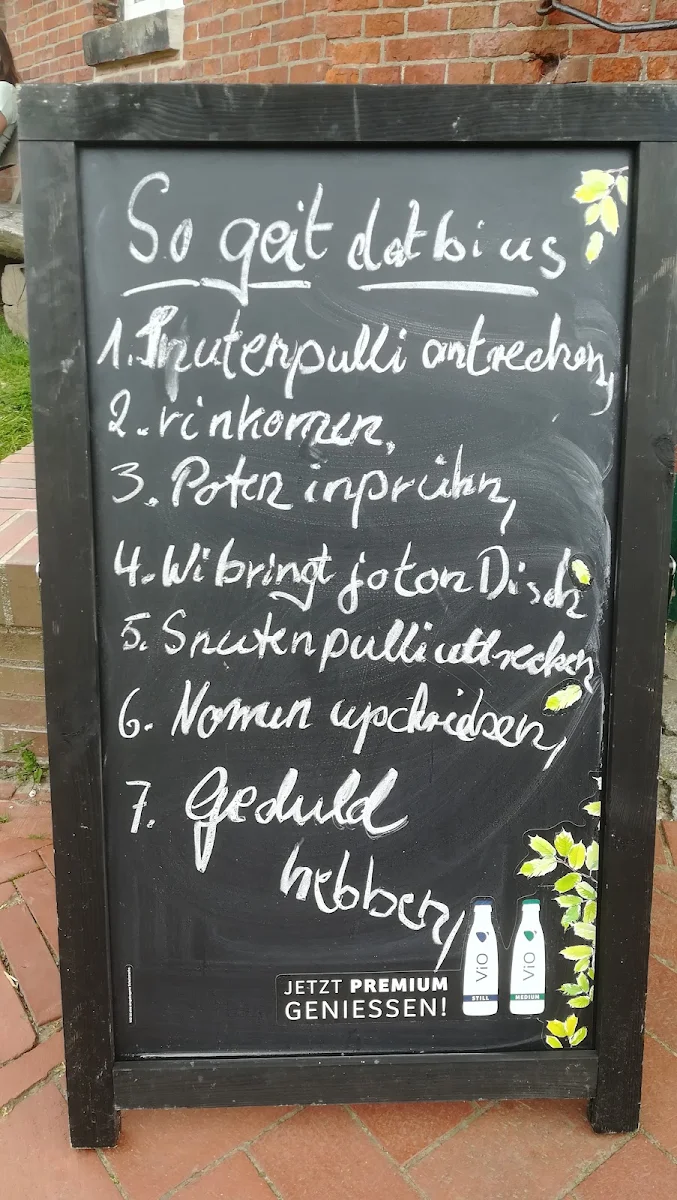 So geit dat bi us
1. Snutenpulli antrecken,
2. rinkomen,
3. Poten insprühn,
4. Wi bringt jo ton Disch
5. Snutenpulli uttrecken
6. Nomen upschrieben,
7. Geduld
hebben,
JETZT PREMIUM
GENIESSEN!
ViO
STILL
ViO
MEDIUM